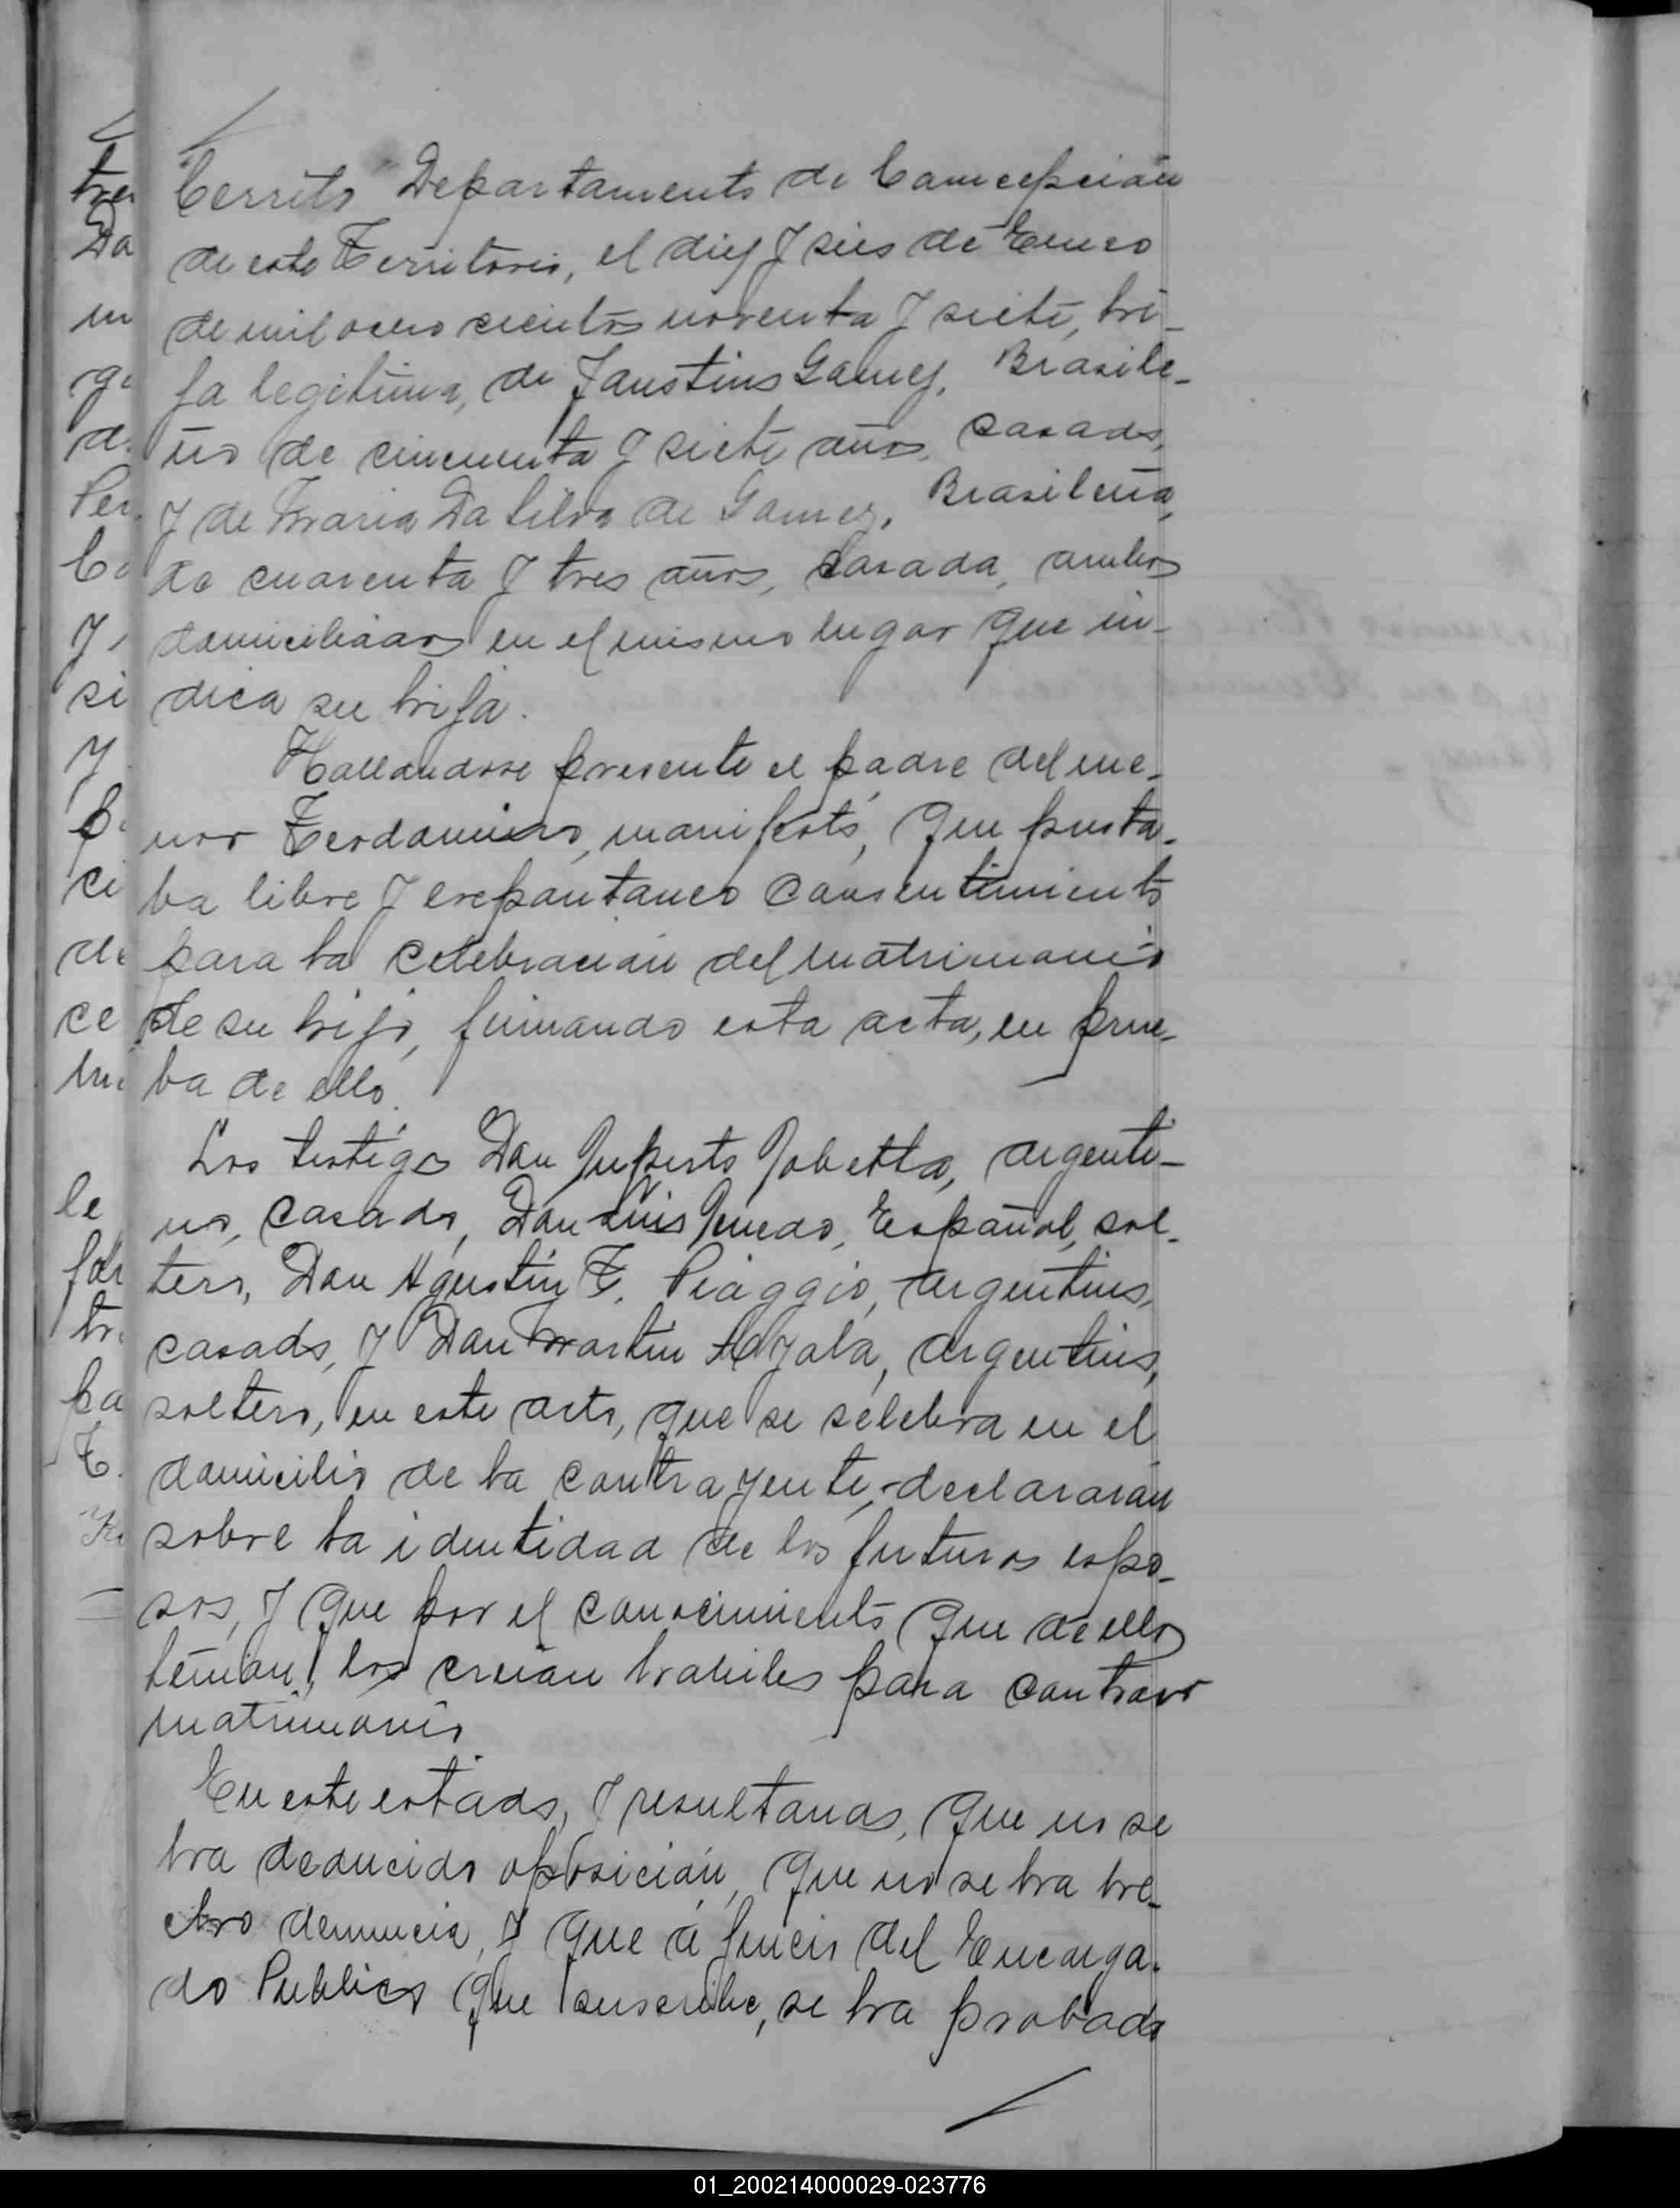 Cerrito Departamento de Concepción
de este Territorio, el diez y seis de Enero
de mil ocho cientos noventa y siete, hi-
ja legitima, de Faustino Gamez, Brasile-
ño de cincuenta y siete años, casado,
y de Maria Da Silva de Gamez, Brasileña,
de cuarenta y tres años, casada, ambos
domiciliados en el mismo lugar que in-
dica su hija.
Hallandose presente el padre del me-
nor Teodomiro, manifestó, que presta-
ba libre y exepontaneo consentimiento
para la celebración del matrimonio
de su hijo, firmando esta acta, en prue-
ba de ello.
Los testigos Don Gobetta, argenti-
no, casado, Don Luis Español, sol-
tero, Don Agustín T. Piaggio, argentino,
casado, y Don Martin Ayala, argentino,
soltero, en este acto, que se selebra en el
domicilio de la contrayente, declararán
sobre la identidad de los futuros espo-
sos, y que por el conocimiento que de ellos
tenian, los creian habiles para contraer
matrimonio
En este estado, y resultando, que no se
ha deducido oposición, que no se ha he-
cho denuncia, y que á juicio del Encarga-
do Publico que suscribe, se ha probado
tres
Da
m
d.
Per
Co
y
si
y
ci
de
ce
le
for
pa
T.
01_200214000029-023776